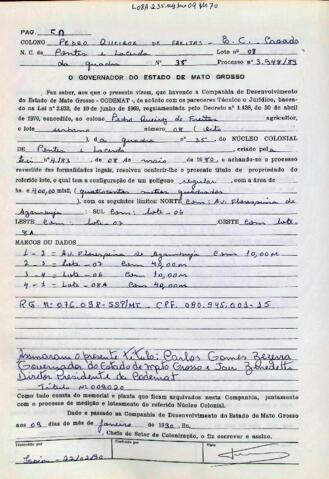 PAG. 5A
COLONO Pedro Queiroz de Freitas - B.C. Casado
N. C. de Pontes e Lacerda Lote nº 08
da quadra nº 35 Processo nº 3.948/89
O GOVERNADOR DO ESTADO DE MATO GROSSO
Faz saber, aos que o presente virem, que havendo a Companhia de Desenvolvimento
do Estado de Mato Grosso - CODEMAT -, de acôrdo com os pareceres Técnico o Jurídico, basea-
da na Lei nº 2.838, de 19 de junho de 1969, regulamentada pelo Decreto nº 1.138, de 30 de abril
de 1970, concedido, ao colono Pedro Queiroz de Freitas agricultor,
o lote urbano número 08 (oito
) da quadra nº 35 do NÚCLEO COLONIAL
DE Pontes e Lacerda criado pela
Lei nº 4.183, de 08 de maio de 1980, e achando-se o processo
revestido das formalidades legais, resolveu conferir-lhe o presente título de propriedade do
referido lote, o qual tem a configuração de um polígono regular, com a área de
hs 400,00 mts2, (quatrocentos metros quadrados
), com os seguintes limites: NORTE Com: Av. Florispina de
Azambuja : SUL Com: Lote-06
LESTE Com: Lote-07 :OESTE Com Lote-
8A
MARCOS OU DADOS
1 - 2 = Av. Florispina de Azambuja Com 10,00M
2 - 3 = Lote - 07 Com 40,00m
3 - 4 = Lote - 06 Com 10,00M
4 - 1 = Lote - 08A Com 40,00m
R.G. nº 076.098-SSP/MT. CPF. 080.945.001-15
Assinaram o presente Título: Carlos Gomes Bezerra
Governador do Estado de Mato Grosso e Jair Benedetti
Diretor Presidente da Codemat
Título nº 009020
Como tudo consta do memorial e planta que ficam arquivados nesta Companhia, juntamente
com o processo de medição e loteamento do referido Núcleo Colonial.
Dado e passado na Companhia de Desenvolvimento do Estado de Mato Grosso
aos 09 dias do mês de janeiro de 1990. Eu
Chefe do Setor de Colonização, o fiz escrever e assino.
22/02/90
Visto